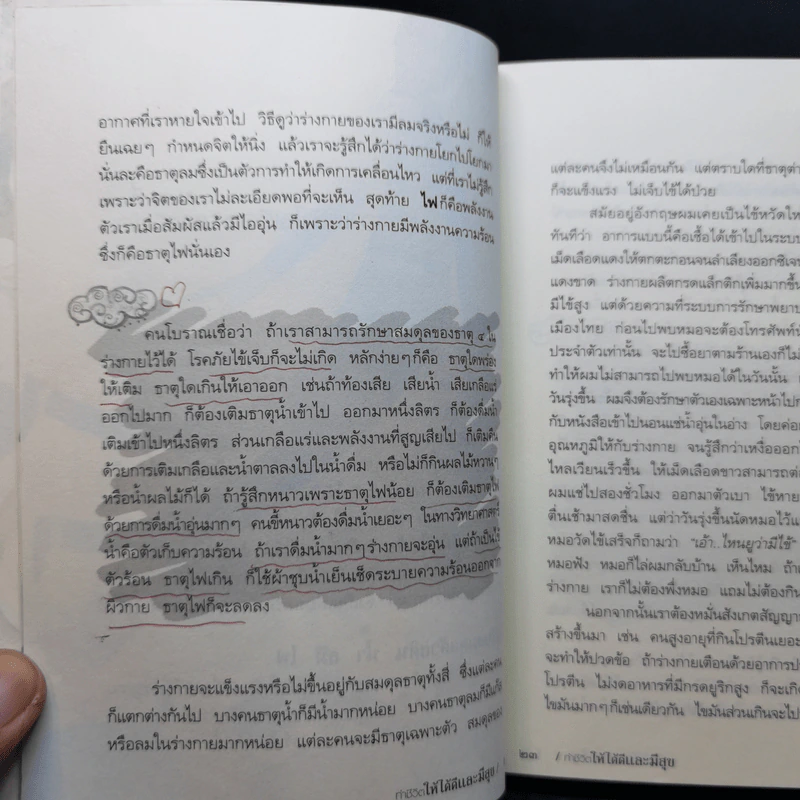 อากาศที่เราหายใจเข้าไป วิธีดูว่าร่างกายของเรามีลมจริงหรือไม่ ก็ให้
ยืนเฉยๆ กำหนดจิตให้นิ่ง แล้วเราจะรู้สึกได้ว่าร่างกายโยกไปโยกมา
นั่นละคือธาตุลมซึ่งเป็นตัวการทำให้เกิดการเคลื่อนไหว แต่ที่เราไม่รู้สึก
เพราะว่าจิตของเราไม่ละเอียดพอที่จะเห็น สุดท้าย ไฟก็คือพลังงาน
ตัวเราเมื่อสัมผัสแล้วมีไออุ่น ก็เพราะว่าร่างกายมีพลังงานความร้อน
ซึ่งก็คือธาตุไฟนั่นเอง
๓
คนโบราณเชื่อว่า ถ้าเราสามารถรักษาสมดุลของธาตุ ๔ ใน
ร่างกายไว้ได้ โรคภัยไข้เจ็บก็จะไม่เกิด หลักง่ายๆ ก็คือ ธาตุใดพร่อง
ให้เติม ธาตุใดเกินให้เอาออก เช่นถ้าท้องเสีย เสียน้ำ เสียเกลือแร่
ออกไปมาก ก็ต้องเติมธาตุน้ำเข้าไป ออกมาหนึ่งลิตร ก็ต้องดื่มน้ำ
เติมเข้าไปหนึ่งลิตร ส่วนเกลือแร่และพลังงานที่สูญเสียไป ก็เติมคืน
ด้วยการเติมเกลือและน้ำตาลลงไปในน้ำดื่ม หรือไม่ก็กินผลไม้หวานๆ
หรือน้ำผลไม้ก็ได้ ถ้ารู้สึกหนาวเพราะธาตุไฟน้อย ก็ต้องเติมธาตุไฟ
ด้วยการดื่มน้ำอุ่นมากๆ คนขี้หนาวต้องดื่มน้ำเยอะๆ ในทางวิทยาศาสตร์
น้ำคือตัวเก็บความร้อน ถ้าเราดื่มน้ำมากๆ ร่างกายจะอุ่น แต่ถ้าเป็นไข้
ตัวร้อน ธาตุไฟเกิน ก็ใช้ผ้าชุบน้ำเย็นเช็ดระบายความร้อนออกจาก
ผิวกาย ธาตุไฟก็จะลดลง
ร่างกายจะแข็งแรงหรือไม่ขึ้นอยู่กับสมดุลธาตุทั้งสี่ ซึ่งแต่ละคน
ก็แตกต่างกันไป บางคนธาตุน้ำก็มีน้ำมากหน่อย บางคนธาตุลมก็มีแก๊ส
หรือลมในร่างกายมากหน่อย แต่ละคนจะมีธาตุเฉพาะตัว สมดุลของ
ทำชีวิตให้ได้ดีและมีสุข /
แต่ละคนจึงไม่เหมือนกัน แต่ตราบใดที่ธาตุต่าง
ก็จะแข็งแรง ไม่เจ็บไข้ได้ป่วย
สมัยอยู่อังกฤษผมเคยเป็นไข้หวัดให
ทันทีว่า อาการแบบนี้คือเชื้อได้เข้าไปในระบบ
เม็ดเลือดแดงให้ตกตะก่อนจนลำเลียงออกซิเจน
แดงขาด ร่างกายผลิตกรดแล็กติกเพิ่มมากขึ้น
มีไข้สูง แต่ด้วยความที่ระบบการรักษาพยาบ
เมืองไทย ก่อนไปพบหมอจะต้องโทรศัพท์นั
ประจำตัวเท่านั้น จะไปซื้อยาตามร้านเองก็ไม่
ทำให้ผมไม่สามารถไปพบหมอได้ในวันนั้น
วันรุ่งขึ้น ผมจึงต้องรักษาตัวเองเฉพาะหน้าไปก
กับหนังสือเข้าไปนอนแช่น้ำอุ่นในอ่าง โดยค่อย
อุณหภูมิให้กับร่างกาย จนรู้สึกว่าเหงื่อออกใ
ไหลเวียนเร็วขึ้น ให้เม็ดเลือดขาวสามารถต่
ผมแช่ไปสองชั่วโมง ออกมาตัวเบา ไข้หาย
ตื่นเช้ามาสดชื่น แต่ว่าวันรุ่งขึ้นนัดหมอไว้แ
หมอวัดไข้เสร็จก็ถามว่า "เอ้า..ไหนยูว่ามีไข้"
หมอฟัง หมอก็ไล่ผมกลับบ้าน เห็นไหม ถ้าเ
ร่างกาย เราก็ไม่ต้องพึ่งหมอ แถมไม่ต้องกิน
นอกจากนั้นเราต้องหมั่นสังเกตสัญญา
สร้างขึ้นมา เช่น คนสูงอายุที่กินโปรตีนเยอะ
จะทำให้ปวดข้อ ถ้าร่างกายเตือนด้วยอาการป
โปรตีน ไม่งดอาหารที่มีกรดยูริกสูง ก็จะเกิ
ไขมันมากๆ ก็เช่นเดียวกัน ไขมันส่วนเกินจะไป
๒๓ / ทำชีวิตให้ได้ดีและมีสุข